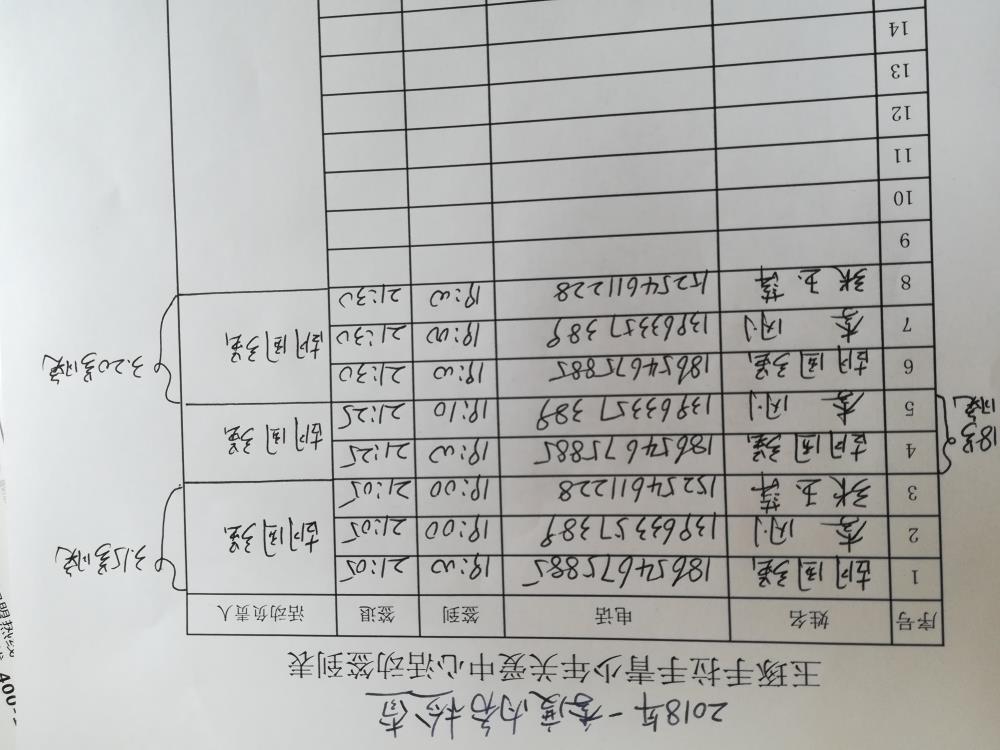 2018年一季度内务检查
玉琢手拉手青少年关爱中心活动签到表
序号 姓名 电话 签到 签退 活动负责人
1 胡国强 18654675885 19:00 21:05
2 李闪 13963357389 19:00 21:05 胡国强
3 张玉萍 15254611228 19:00 21:05
3.15号晚
4 胡国强 18654675885 19:00 21:25
5 李闪 13963357389 19:10 21:25 胡国强
18号晚
6 胡国强 18654675885 19:00 21:30
7 李闪 13963357389 19:00 21:30 胡国强
8 张玉萍 15254611228 19:00 21:30
3.20号晚
9
10
11
12
13
14
盟热线
400-